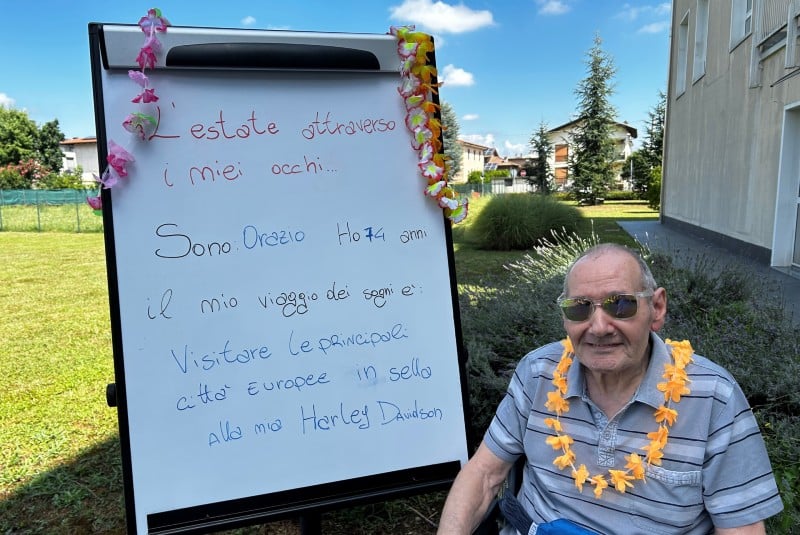 L'estate attraverso
i miei occhi...
Sono: Orazio Ho 74 anni
il mio viaggio dei sogni è:
Visitare le principali
città Europee in sella
alla mia Harley Davidson